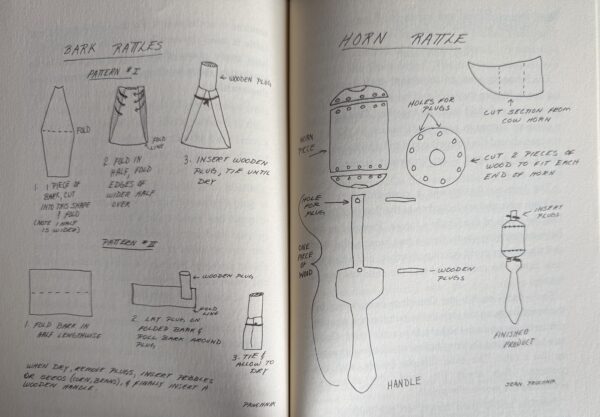 BARK RATTLES
PATTERN #I
← WOODEN PLUG
FOLD
FOLD LINE
1. 1 PIECE OF
BARK, CUT
INTO THIS SHAPE
& FOLD
(NOTE 1 HALF
IS WIDER)
2. FOLD IN
HALF, FOLD
EDGES OF
WIDER HALF
OVER
3. INSERT WOODEN
PLUG, TIE UNTIL
DRY
PATTERN #II
WOODEN PLUG
FOLD
LINE
1. FOLD BARK IN
HALF LENGTHWISE
2. LAY PLUG ON
FOLDED BARK &
ROLL BARK AROUND
PLUG
3. TIE &
ALLOW TO
DRY
WHEN DRY, REMOVE PLUGS, INSERT PEBBLES
OR SEEDS (CORN, BEANS), & FINALLY INSERT A
WOODEN HANDLE
PROCHNIK
HORN RATTLE
CUT SECTION FROM
COW HORN
HOLES FOR
PLUGS
HORN
PIECE
CUT 2 PIECES OF
WOOD TO FIT EACH
END OF HORN
HOLE
FOR
PLUG
ONE
PIECE
OF
WOOD
INSERT
PLUGS
WOODEN
PLUGS
FINISHED
PRODUCT
HANDLE
JEAN PROCHNIK